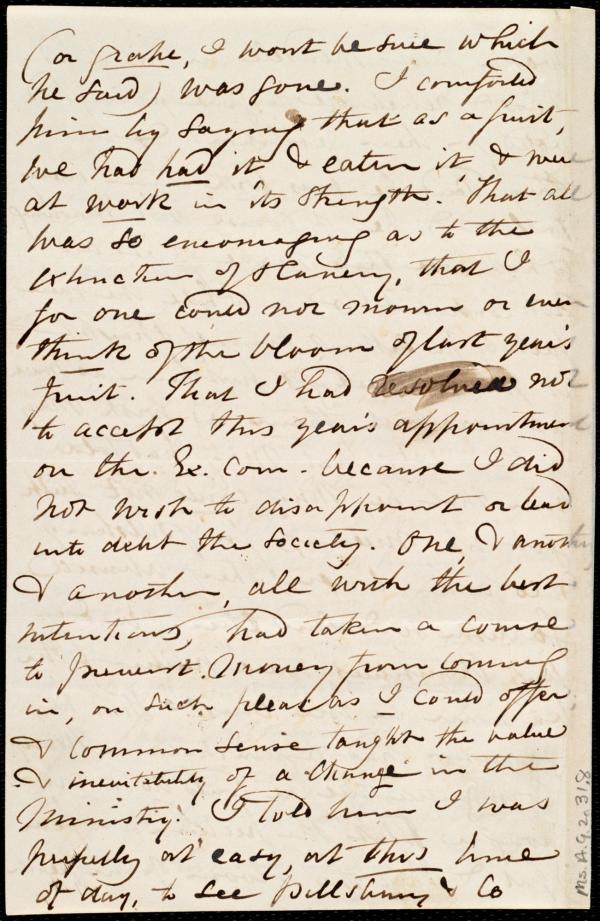 (or grape, I wont be sure which
he said) was gone. I comforted
him by saying that as a fruit,
we had had it & eaten it, & were
at work in its strength. That all
was so encouraging as to the
extinction of slavery, that I
for one could not mourn or even
think of the bloom of last year's
fruit. That I had resolved not
to accept this year's appointment
on the Ex. Com. because I did
not wish to disappoint or lead
into debt the society. One, & another
& another, all with the best
intentions, had taken a course
to prevent money from coming
in, on such pleas as I could offer,
& common sense taught the value
& inevitability of a change in the
Ministry. I told him I was
perfectly at easy, at this time
of day, to see Pillsbury & Co
Ms.A.9.2.31.8